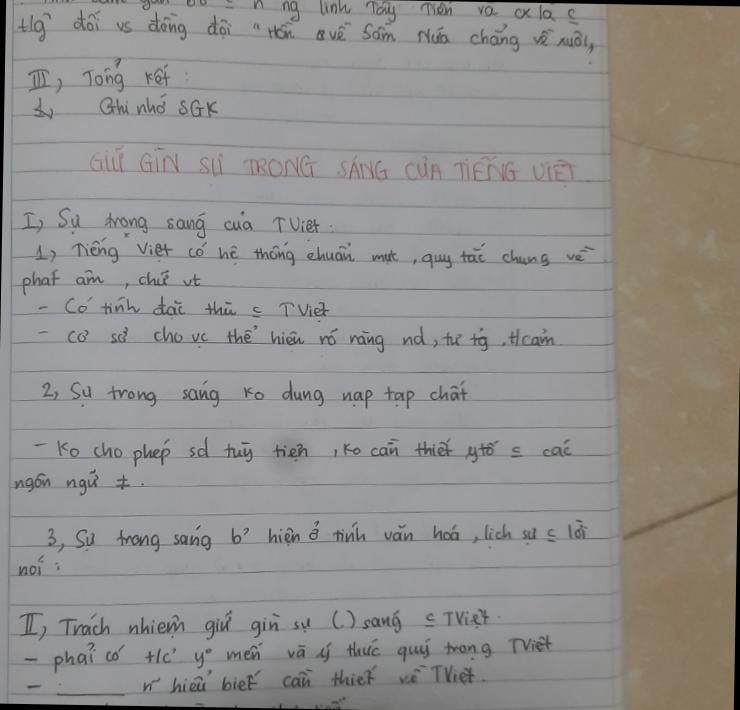 ng lính Tây Tiến và cx là c̲
tlg đối vs đồng đội "Hồn về Sầm Nứa chẳng về xuôi,
III, Tổng kết :
1, Ghi nhớ SGK
GIỮ GÌN SỰ TRONG SÁNG CỦA TIẾNG VIỆT.
I, Sự trong sáng của TViệt.
1, Tiếng Việt có hệ thống chuẩn mực, quy tắc chung về
phát âm, chữ vt
- Có tính đặc thù c̲ TViệt
- cơ sở cho vc thể hiện rõ ràng nd, tư tg, t/cảm
2, Sự trong sáng ko dung nạp tạp chất
- Ko cho phép sd tuỳ tiện, ko cần thiết ytố c̲ các
ngôn ngữ ≠.
3, Sự trong sáng b' hiện ở tính văn hoá, lịch sự c̲ lời
nói :
II, Trách nhiệm giữ gìn sự (.) sáng c̲ TViệt.
- phải có t/c' yº mến và ý thức quý trọng TViệt
- ______ n~ hiểu biết cần thiết về TViệt.